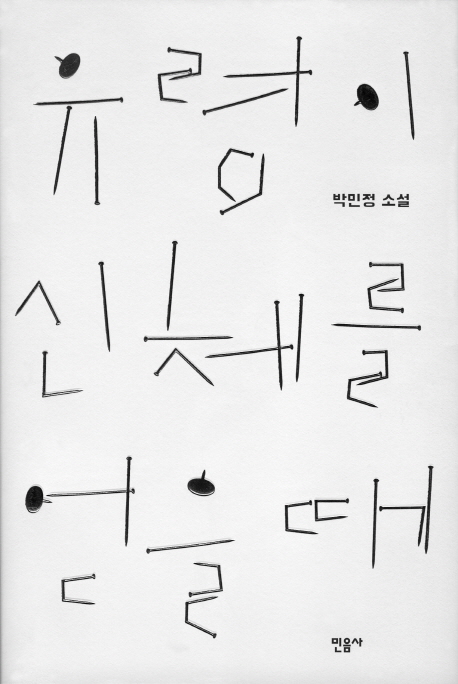 유령이
박민정 소설
신체를
얻을 때
민음사